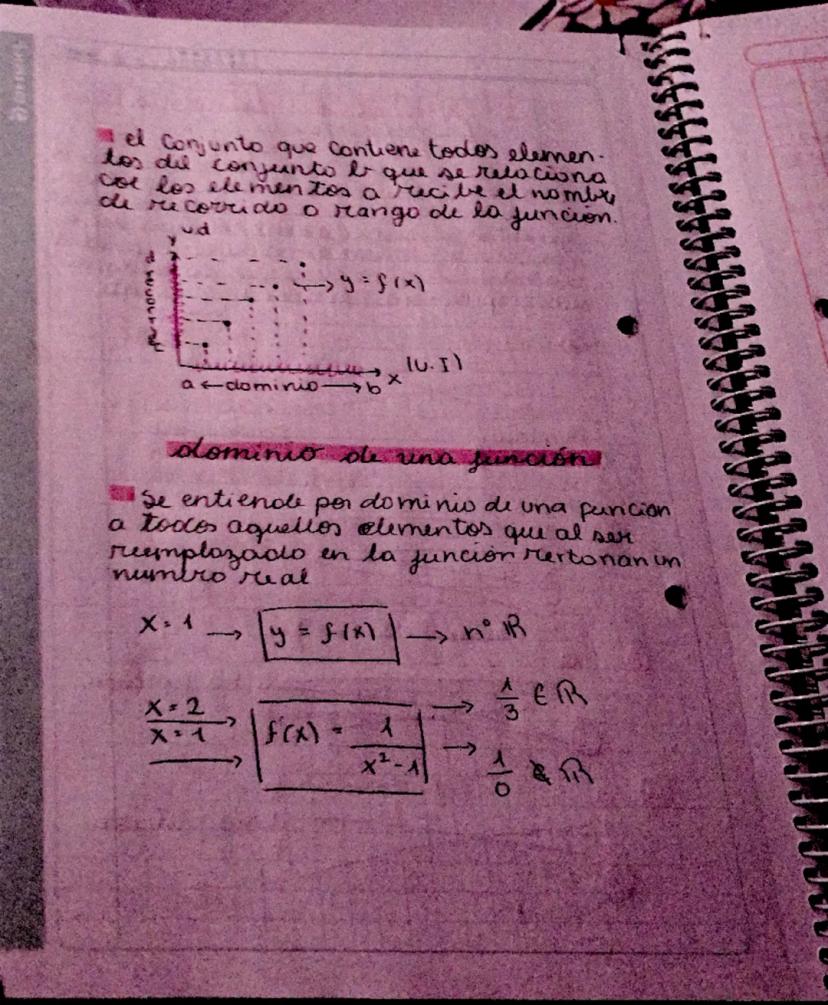 el conjunto que contiene todos elemen-
tos del conjunto b que se relaciona
col los elementos a recibe el nombre
de recorrido o rango de la función.
v.d
y
y = f(x)
x (v.I)
a ← dominio → b
dominio de una función
Se entiende por dominio de una función
a todos aquellos elementos que al ser
reemplazado en la función rertonan un
numero real
x = 1 → y = f(x) → n° ℝ
x = 2 → f(x) = 1/(x² - 1) → 1/3 ∈ ℝ
x = 1 → 1/0 ∉ ℝ